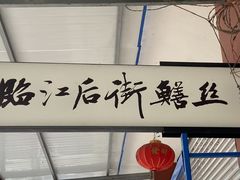 临江后街鳝丝